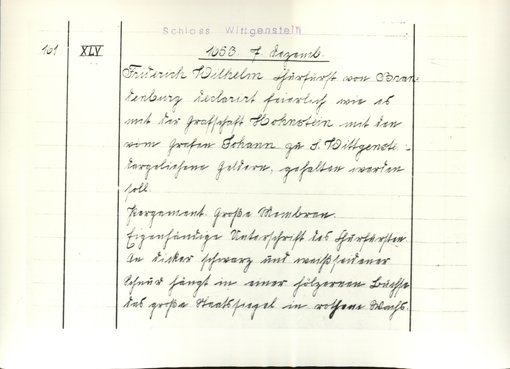 Schloss Wittgenstein
101 XLV 1653. 7. Dezemb.
Friderich Wilhelm Churfürst von Bran-
denburg declarirt feierlich wie es
mit der Grafschaft Hohnstein mit den
vom Grafen Johann zu S. Wittgenst. -
dargeliehene Geldern, gehalten werden
soll.
Pergament. Große Membran.
Eigenhändige Unterschrift des Churfürsten.
An dicker schwarz und weißseidener
Schnur hängt in einer hölzernen Büchse
das große Staatssiegel in rothem Wachs.